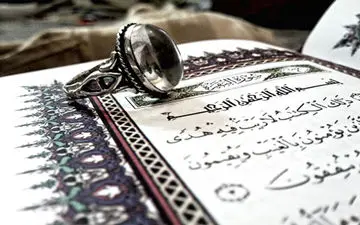 بسم الله الرحمن الرحيم
الْكِتَبُ لَا رَيْبَ فِيهِ هُدًى
يُؤْمِنُونَ بِالْغَيْبِ وَيُقِيمُونَ
يُنفِقُونَ